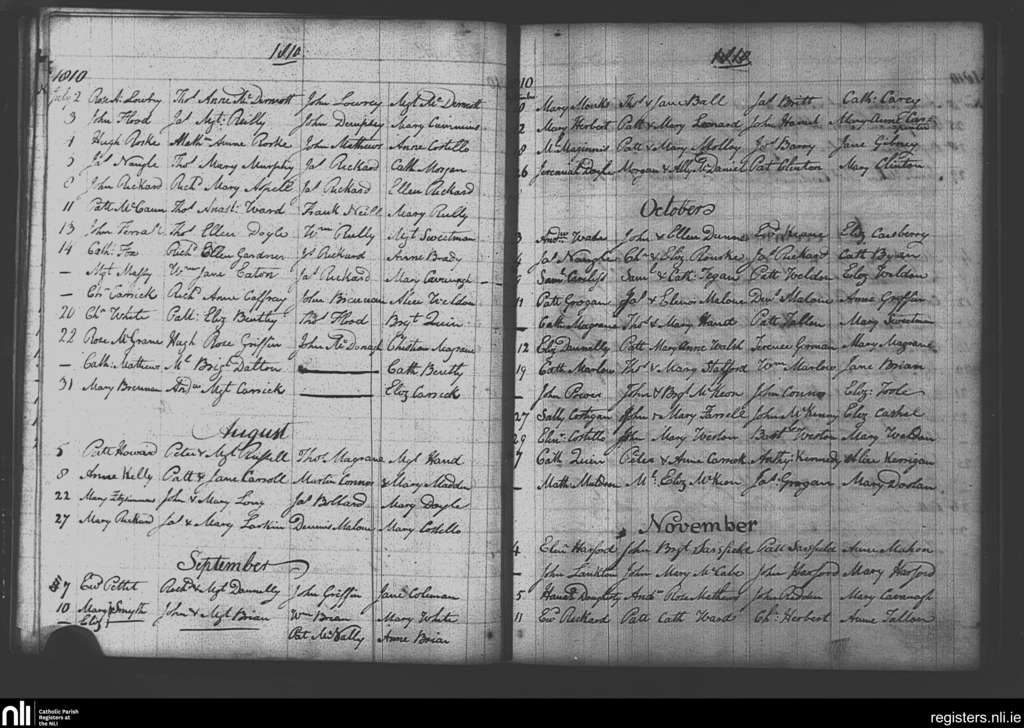 1810
1810
July 2 Rose A. Lowry Thos Anne McDermott John Lowrey Mgt McDermott
3 John Flood Jas Mgt Reilly John Dempsey Mary Cummins
Hugh Rorke Anne Rorke John Mathews Anne Costello
Jas Nangle Thos Mary Murphy Jas Rickard Cath Morgan
8 John Rickard Richd Mary Jas Rickard Ellen Rickard
11 Patt McCann Thos Anast. Ward Frank Neill Mary Reilly
13 John Thos Ellen Doyle Wm Reilly Mgt Sweetman
14 Cath: Fox Richd Ellen Gardner Js Rickard Anne Brady
— Mgt Wm Jane Eaton Jas Rickard Mary Cavenagh
— Carrick Richd Anne Caffrey John Brennan Alice Weldon
20 Chs White Patt. Eliz Bently Thos Flood Brigt Quin
22 Rose McGrane Hugh Rose Griffin John McDonagh Christian Magrane
— Cath: Mathews Ml Brigt Dalton Cath Bently
31 Mary Brennan Andw Mgt Carrick Eliz Carrick
August
5 Patt Howard Peter & Mgt Russell Thos Magrane Mgt Hand
8 Anne Kelly Patt & Jane Carroll Martin Connor & Mary Madden
22 Mary Fitzsimmons John & Mary Long Jas Bollard Mary Doyle
27 Mary Rickard Jas & Mary Larkin Dennis Malone Mary Costello
September
7 Edw Pettet Richd & Mgt Dannelly John Griffin Jane Coleman
10 Mary Smyth John & Mgt Brian Wm Brian Mary White
— Eliz Pat McNally Anne Brian
1810
10
Mary Monks Thos & Jane Ball Jas Britt Cath: Carey
Mary Herbert Patt & Mary Leonard John Mary Anne
8 McGuinnis Patt & Mary Molloy Jos Barry Jane Gibney
26 Jeremiah Doyle Morgan & Ally McDaniel Pat Clinton Mary Clinton
October
3 Andw John & Ellen Dunne Keane Eliz Casberry
Jas Naughe Chs & Eliz Rourke Jas Rickard Cath Byan
Saml Carlyle Saml & Cath: Fegan Patt Weldon Eliz Weldon
11 Patt Grogan Jas & Elenor Malone Denis Malone Anne Griffin
— Cath: Magrane Thos & Mary Hand Patt Fallen Mary Sweetman
12 Eliz Dannelly Patt Mary Anne Walsh Terence Gorman Mary Magrane
19 Cath Marlow Thos & Mary Stafford Wm Marlow Jane Brian
— John Power John & Brgt McKeon John Connor Eliz: Toole
27 Sally Costigan John & Mary Farrell John McKenny Eliz Cashel
29 Elinr Costello John Mary Weston Bart Weston Mary Weldon
7 Cath Quin Peter & Anne Carrick Anthy: Kennedy & Alice Kerrigan
— Math: Muldoon Ml. Eliz McKeon Jas Grogan Mary Doolan
November
4 Elinr Harford John Brgt Sarsfield Patt Sarsfield Anne Mahon
— John Lankton John Mary McCabe John Harford Mary Harford
5 Hanah Dougherty Andw Rose Mathews John Mary Cavanagh
11 Edw Rickard Patt Cath Ward Chs: Herbert Anne Fallon
nli
Catholic Parish
Registers at
the NLI
registers.nli.ie